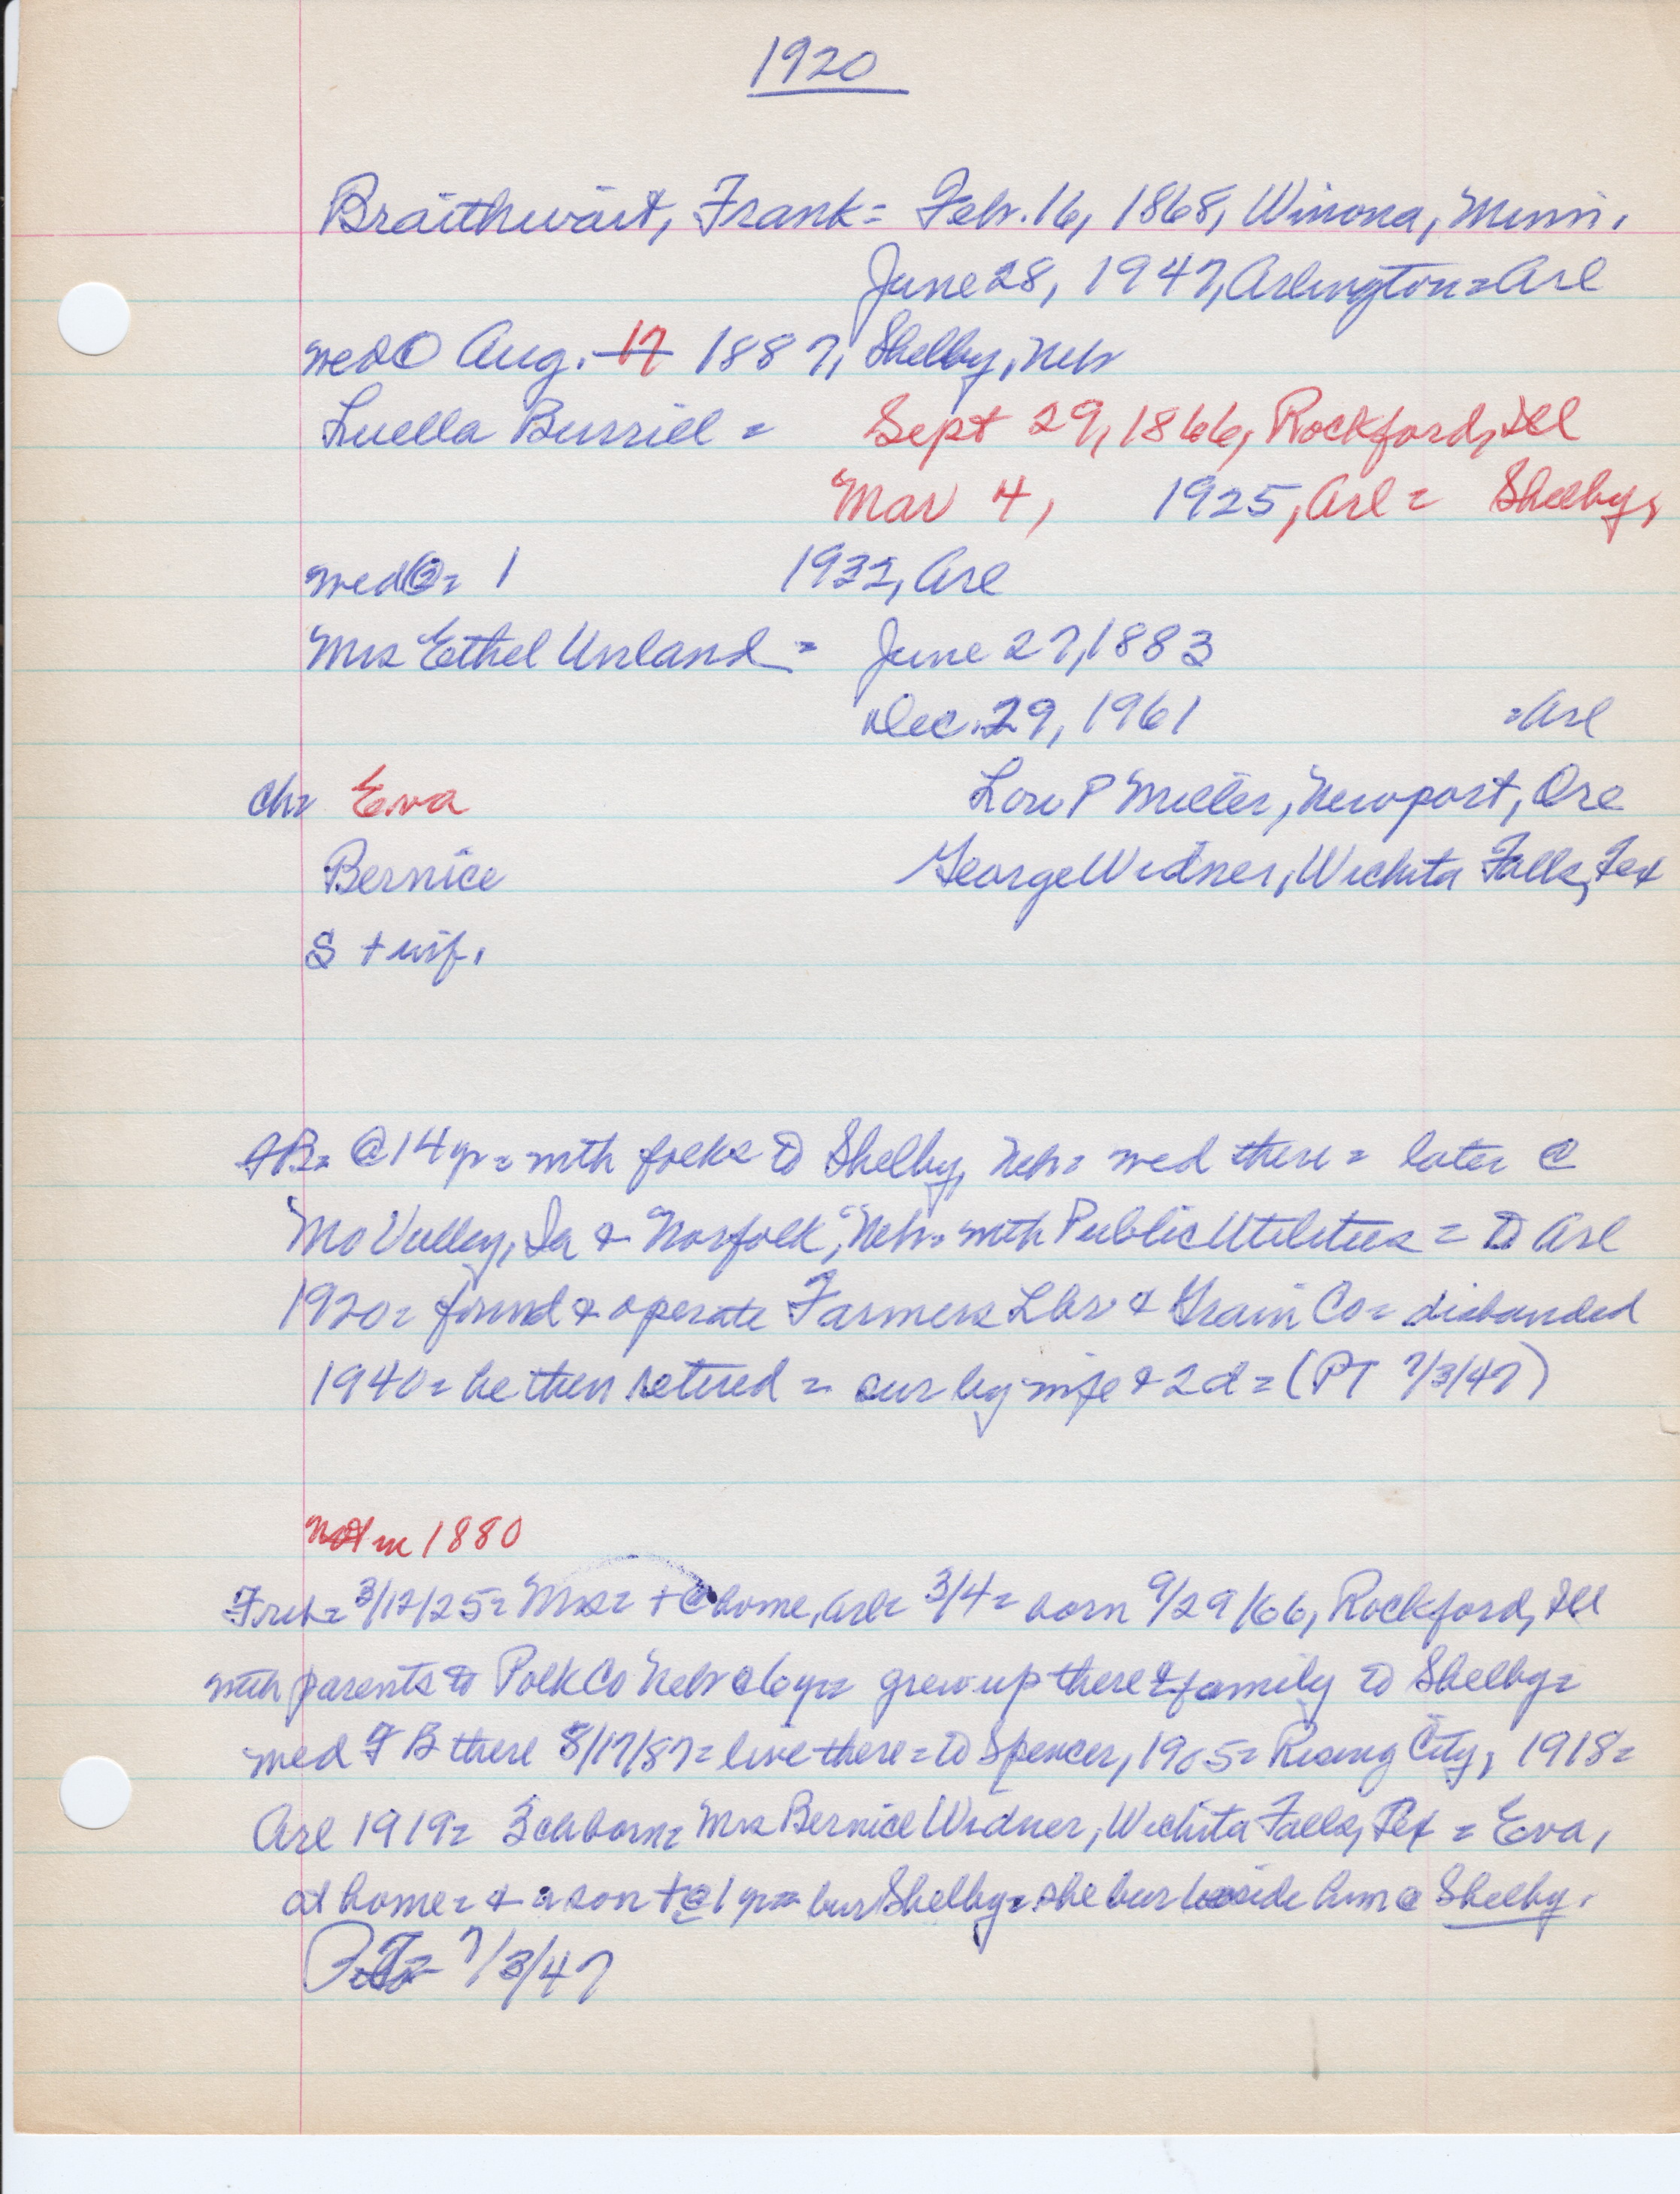 1920
Braithwait, Frank = Feb. 16, 1868, Winona, Minn.
June 28, 1947, Arlington = Arl
med ① Aug. 17 1887, Shelby, Neb
Luella Burriel = Sept 29, 1866, Rockford, Ill
Mar 4, 1925, Arl = Shelby,
med ② = 1932, Arl
Mrs Ethel Unland = June 27, 1883
Dec. 29, 1961 = Arl
ch = Eva Low P Miller, Newport, Ore
Bernice George Widner, Wichita Falls, Tex
S + inf.
FB = @ 14 yr = with folks to Shelby, Neb = med there = later @
Mo Valley, Ia & Norfolk, Neb. with Public Utilities = to Arl
1920 = found & operate Farmers Lbr & Grain Co = disbanded
1940 = he then retired = sur by wife & 2 d = (PT 7/3/47)
Not in 1880
3/12/25 = Mrs = + @ home, Arl = 3/4 = born 9/29/66, Rockford, Ill
with parents to Polk Co Neb @ 6 yr = grew up there & family to Shelby =
med FB there 8/17/87 = live there = to Spencer, 1905 = Rising City, 1918 =
Arl 1919 = 3 ch born = Mrs Bernice Widner, Wichita Falls, Tex = Eva,
at home = & a son + @ 1 yr = bur Shelby = she bur beside him @ Shelby.
7/3/47